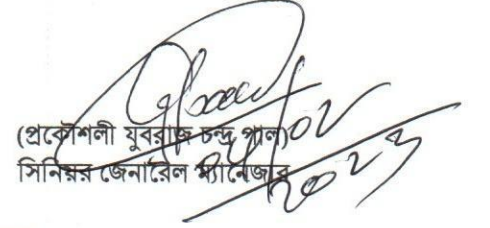 (প্রকৌশলী যুবরাজ চন্দ্র পাল)
সিনিয়র জেনারেল ম্যানেজার
২০২৩